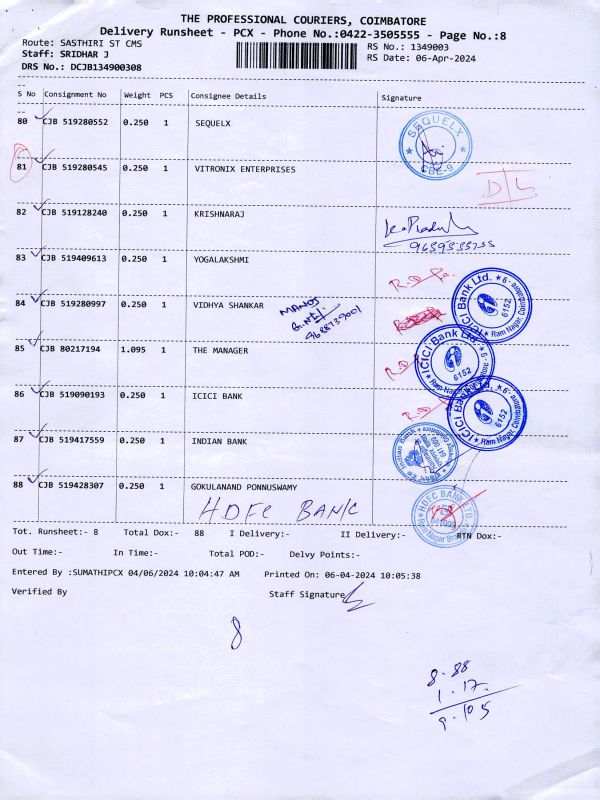 THE PROFESSIONAL COURIERS, COIMBATORE
Delivery Runsheet - PCX - Phone No.:0422-3505555 - Page No.:8
Route: SASTHIRI ST CMS
RS No.: 1349003
Staff: SRIDHAR J
RS Date: 06-Apr-2024
DRS No.: DCJB134900308
S No Consignment No Weight PCS Consignee Details Signature
80 CJB 519280552 0.250 1 SEQUELX
SEQUELX
CBE-9
81 CJB 519280545 0.250 1 VITRONIX ENTERPRISES
D/L
82 CJB 519128240 0.250 1 KRISHNARAJ
83 CJB 519409613 0.250 1 YOGALAKSHMI
84 CJB 519280997 0.250 1 VIDHYA SHANKAR
MANOJ
ICICI Bank Ltd.
6152
Ram Nagar, Coimbatore - 9
85 CJB 80217194 1.095 1 THE MANAGER
ICICI Bank Ltd.
6152
Ram Nagar, Coimbatore - 9
86 CJB 519090193 0.250 1 ICICI BANK
ICICI Bank Ltd.
6152
Ram Nagar, Coimbatore - 9
87 CJB 519417559 0.250 1 INDIAN BANK
Indian Bank
88 CJB 519428307 0.250 1 GOKULANAND PONNUSWAMY
HDFC BANK
HDFC BANK LTD
Ram Nagar Branch
Tot. Runsheet:- 8 Total Dox:- 88 I Delivery:- II Delivery:- RTN Dox:-
Out Time:- In Time:- Total POD:- Delvy Points:-
Entered By :SUMATHIPCX 04/06/2024 10:04:47 AM Printed On: 06-04-2024 10:05:38
Verified By Staff Signature
8
8.88
1.17
9.105